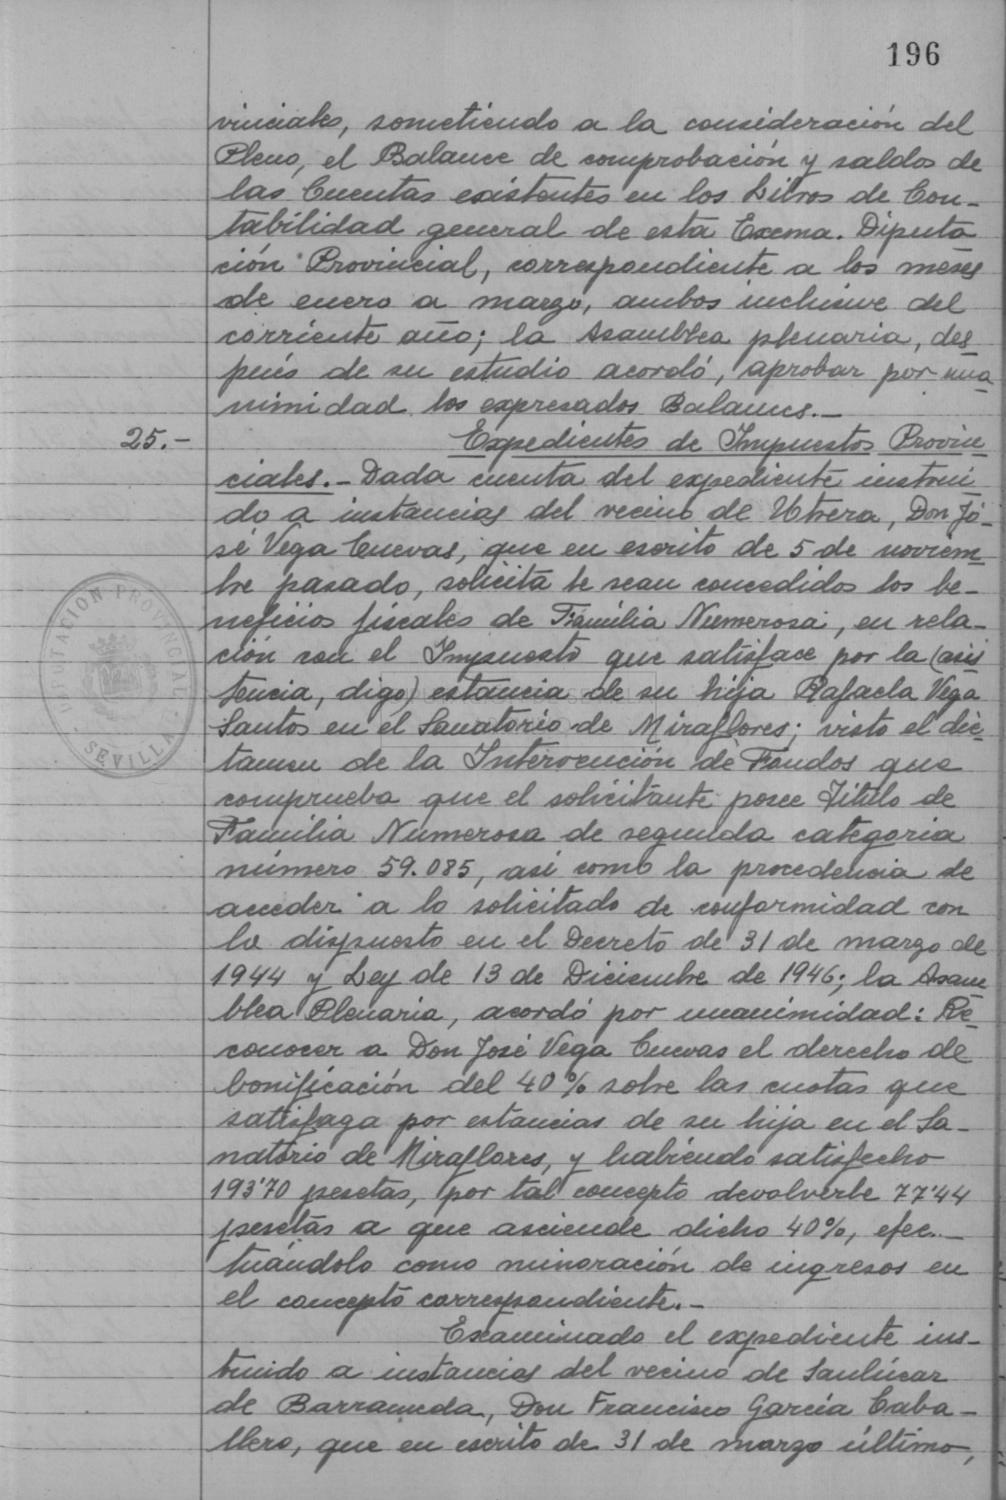 196
vinciales, sometiendo a la consideración del
Pleno, el Balance de comprobación y saldos de
las Cuentas existentes en los Libros de Con-
tabilidad general de esta Excma. Diputa
ción Provincial, correspondiente a los meses
de enero a marzo, ambos inclusive del
corriente año; la Asamblea plenaria, des
pués de su estudio acordó, aprobar por una
nimidad los expresados Balances.-
25.- Expedientes de Impuestos Provin
ciales.- Dada cuenta del expediente instrui
do a instancias del vecino de Utrera, Don Jo-
sé Vega Cuevas, que en escrito de 5 de noviem
bre pasado, solicita le sean concedidos los be-
neficios fiscales de Familia Numerosa, en rela-
ción con el Impuesto que satisface por la (asis
tencia, digo) estancia de su hija Rafaela Vega
Santos en el Sanatorio de Miraflores; visto el dic-
tamen de la Intervención de Fondos que
comprueba que el solicitante posee Título de
Familia Numerosa de segunda categoria
número 59.085, asi como la procedencia de
acceder a lo solicitado de conformidad con
lo dispuesto en el Decreto de 31 de marzo de
1944 y Ley de 13 de Diciembre de 1946; la Asam
blea Plenaria, acordó por unanimidad: Re-
conocer a Don José Vega Cuevas el derecho de
bonificación del 40% sobre las cuotas que
satisfaga por estancias de su hija en el Sa-
natorio de Miraflores, y habiendo satisfecho
193'70 pesetas, por tal concepto devolverle 77'44
pesetas a que asciende dicho 40%, efec-
tuándolo como minoración de ingresos en
el concepto correspondiente.-
Examinado el expediente ins-
truido a instancias del vecino de Sanlúcar
de Barrameda, Don Francisco García Caba-
llero, que en escrito de 31 de marzo último,
DIPUTACION PROVINCIAL
- SEVILLA -